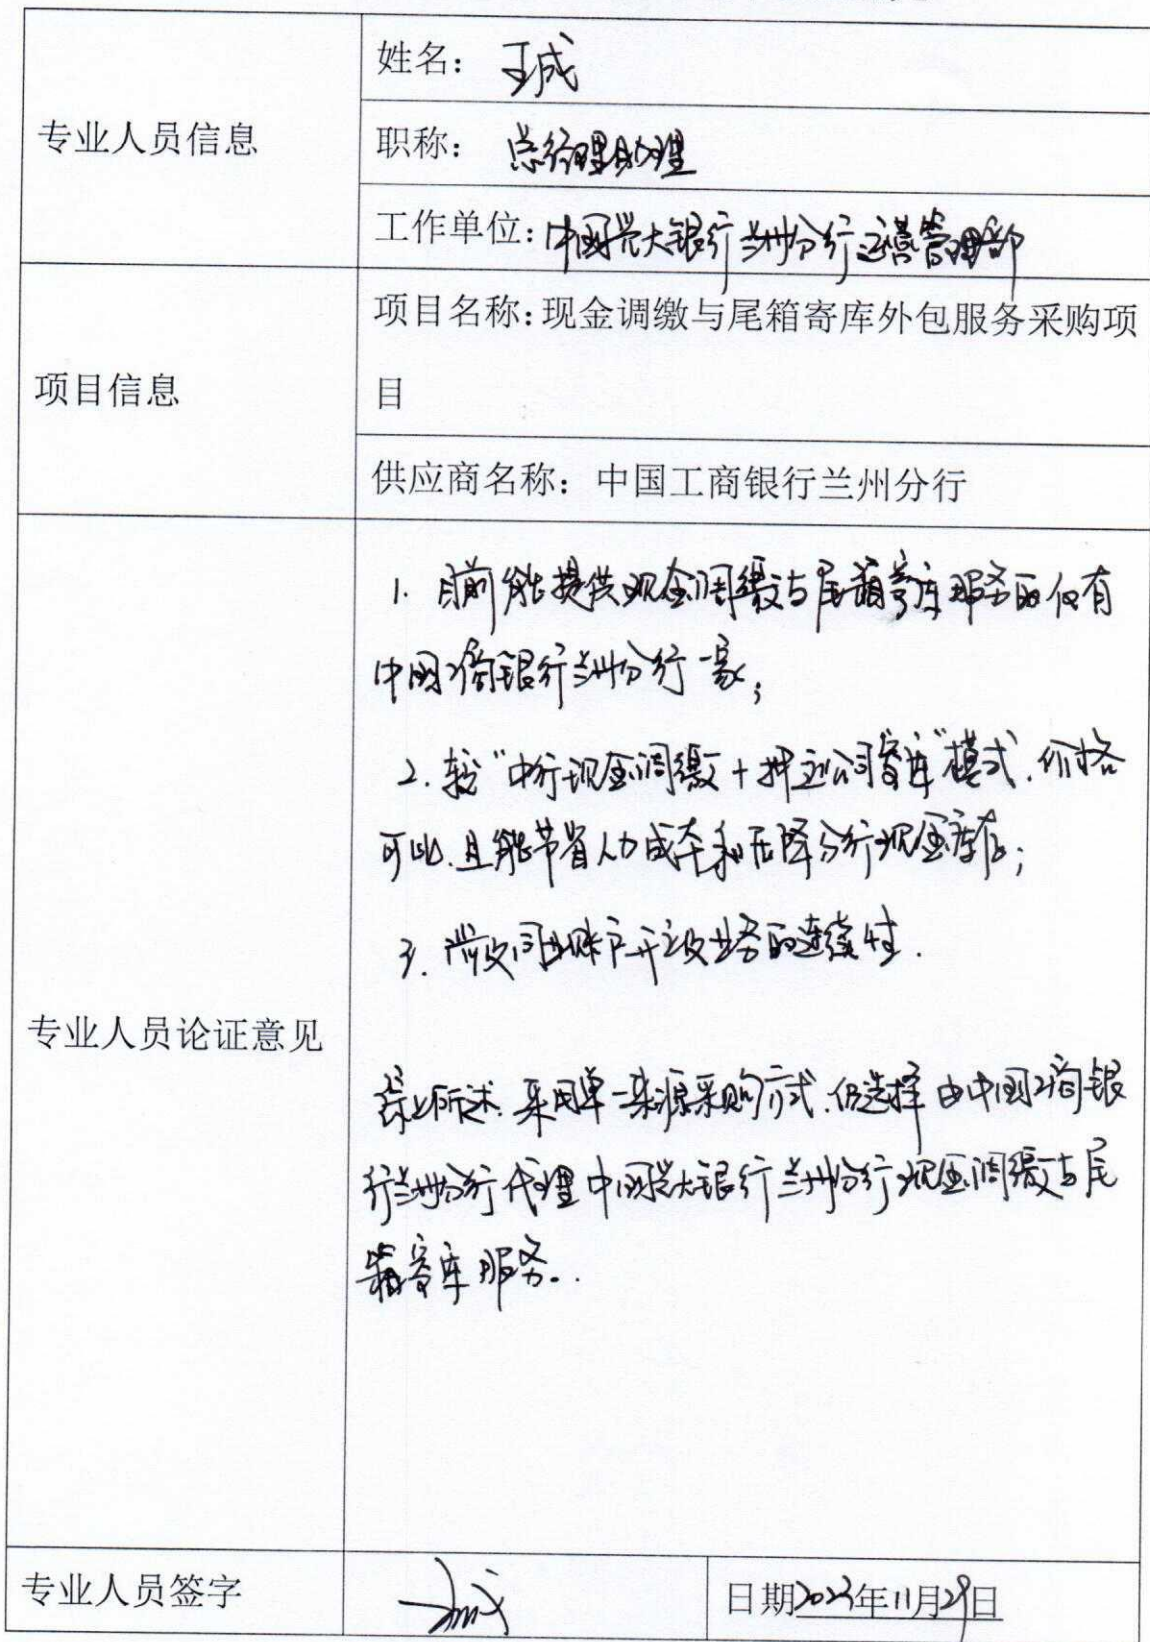 专业人员信息
姓名：王成
职称：总经理助理
工作单位：中国光大银行兰州分行运营管理部
项目信息
项目名称：现金调缴与尾箱寄库外包服务采购项
目
供应商名称：中国工商银行兰州分行
专业人员论证意见
1. 目前能提供现金调缴与尾箱寄库服务的仅有
中国工商银行兰州分行一家；
2. 较“中行现金调缴+押运公司寄库”模式，价格
可比，且能节省人力成本和压降分行现金库存；
3. 同业账户开立及业务的连续性.
综上所述，采用单一来源采购方式，仍选择由中国工商银
行兰州分行代理中国光大银行兰州分行现金调缴与尾
箱寄库服务。
专业人员签字
王成
日期2023年11月29日